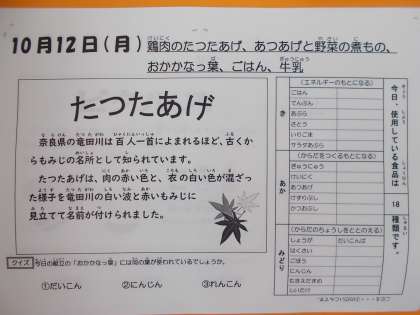 10月12日(月) 鶏肉のたつたあげ、あつあげと野菜の煮もの、
おかかなっ葉、ごはん、牛乳
たつたあげ
奈良県の竜田川は百人一首によまれるほど、古く
からもみじの名所として知られています。
たつたあげは、肉の赤い色と、衣の白い色が混ざっ
た様子を竜田川の白い波と赤いもみじに
見立てて名前が付けられました。
クイズ 今日の献立の「おかかなっ葉」には何の葉が使われているでしょうか。
①だいこん ②にんじん ③れんこん
今日、使用している食品は
18
種類です。
き
(エネルギーのもとになる)
ごはん
でんぷん
あぶら
さとう
いりごま
サラダあぶら
あか
(からだをつくるもとになる)
ぎゅうにゅう
けいにく
あつあげ
けずりぶし
かつおぶし
みどり
(からだのちょうしをととのえる)
しょうが だいこんば
はくさい
ごぼう
にんじん
たまねぎ
しいたけ